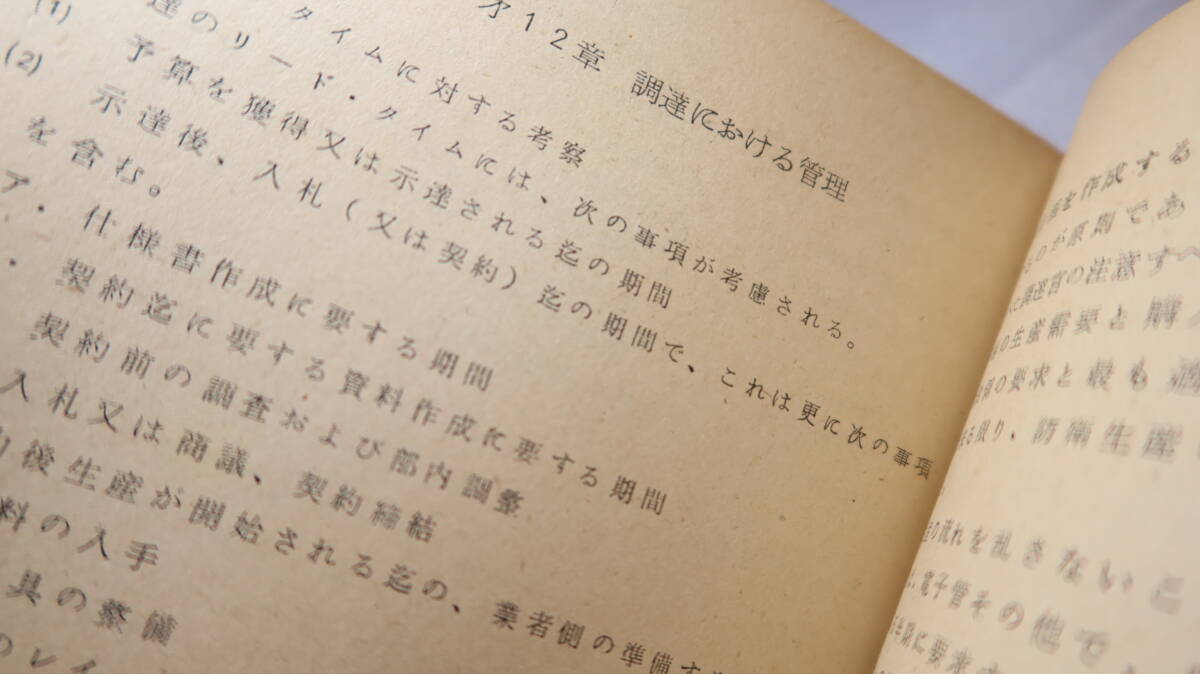 才12章 調達における管理
タイムに対する考察
達のリード・タイムには、次の事項が考慮される。
(1) 予算を獲得又は示達される迄の期間
(2) 示達後、入札(又は契約)迄の期間で、これは更に次の事項
を含む。
ア・仕様書作成に要する期間
・契約迄に要する資料作成に要する期間
契約前の調査および部内調整
入札又は商議、契約締結
後生産が開始される迄の、業者側の準備
料の入手
具の整備
のレイ
を作成する
が原則であ
官の注意すべ
の生産需要と購
の要求と最も適
限り、防衛生産
の流れを乱さないこ
電子管その他で
期に要求